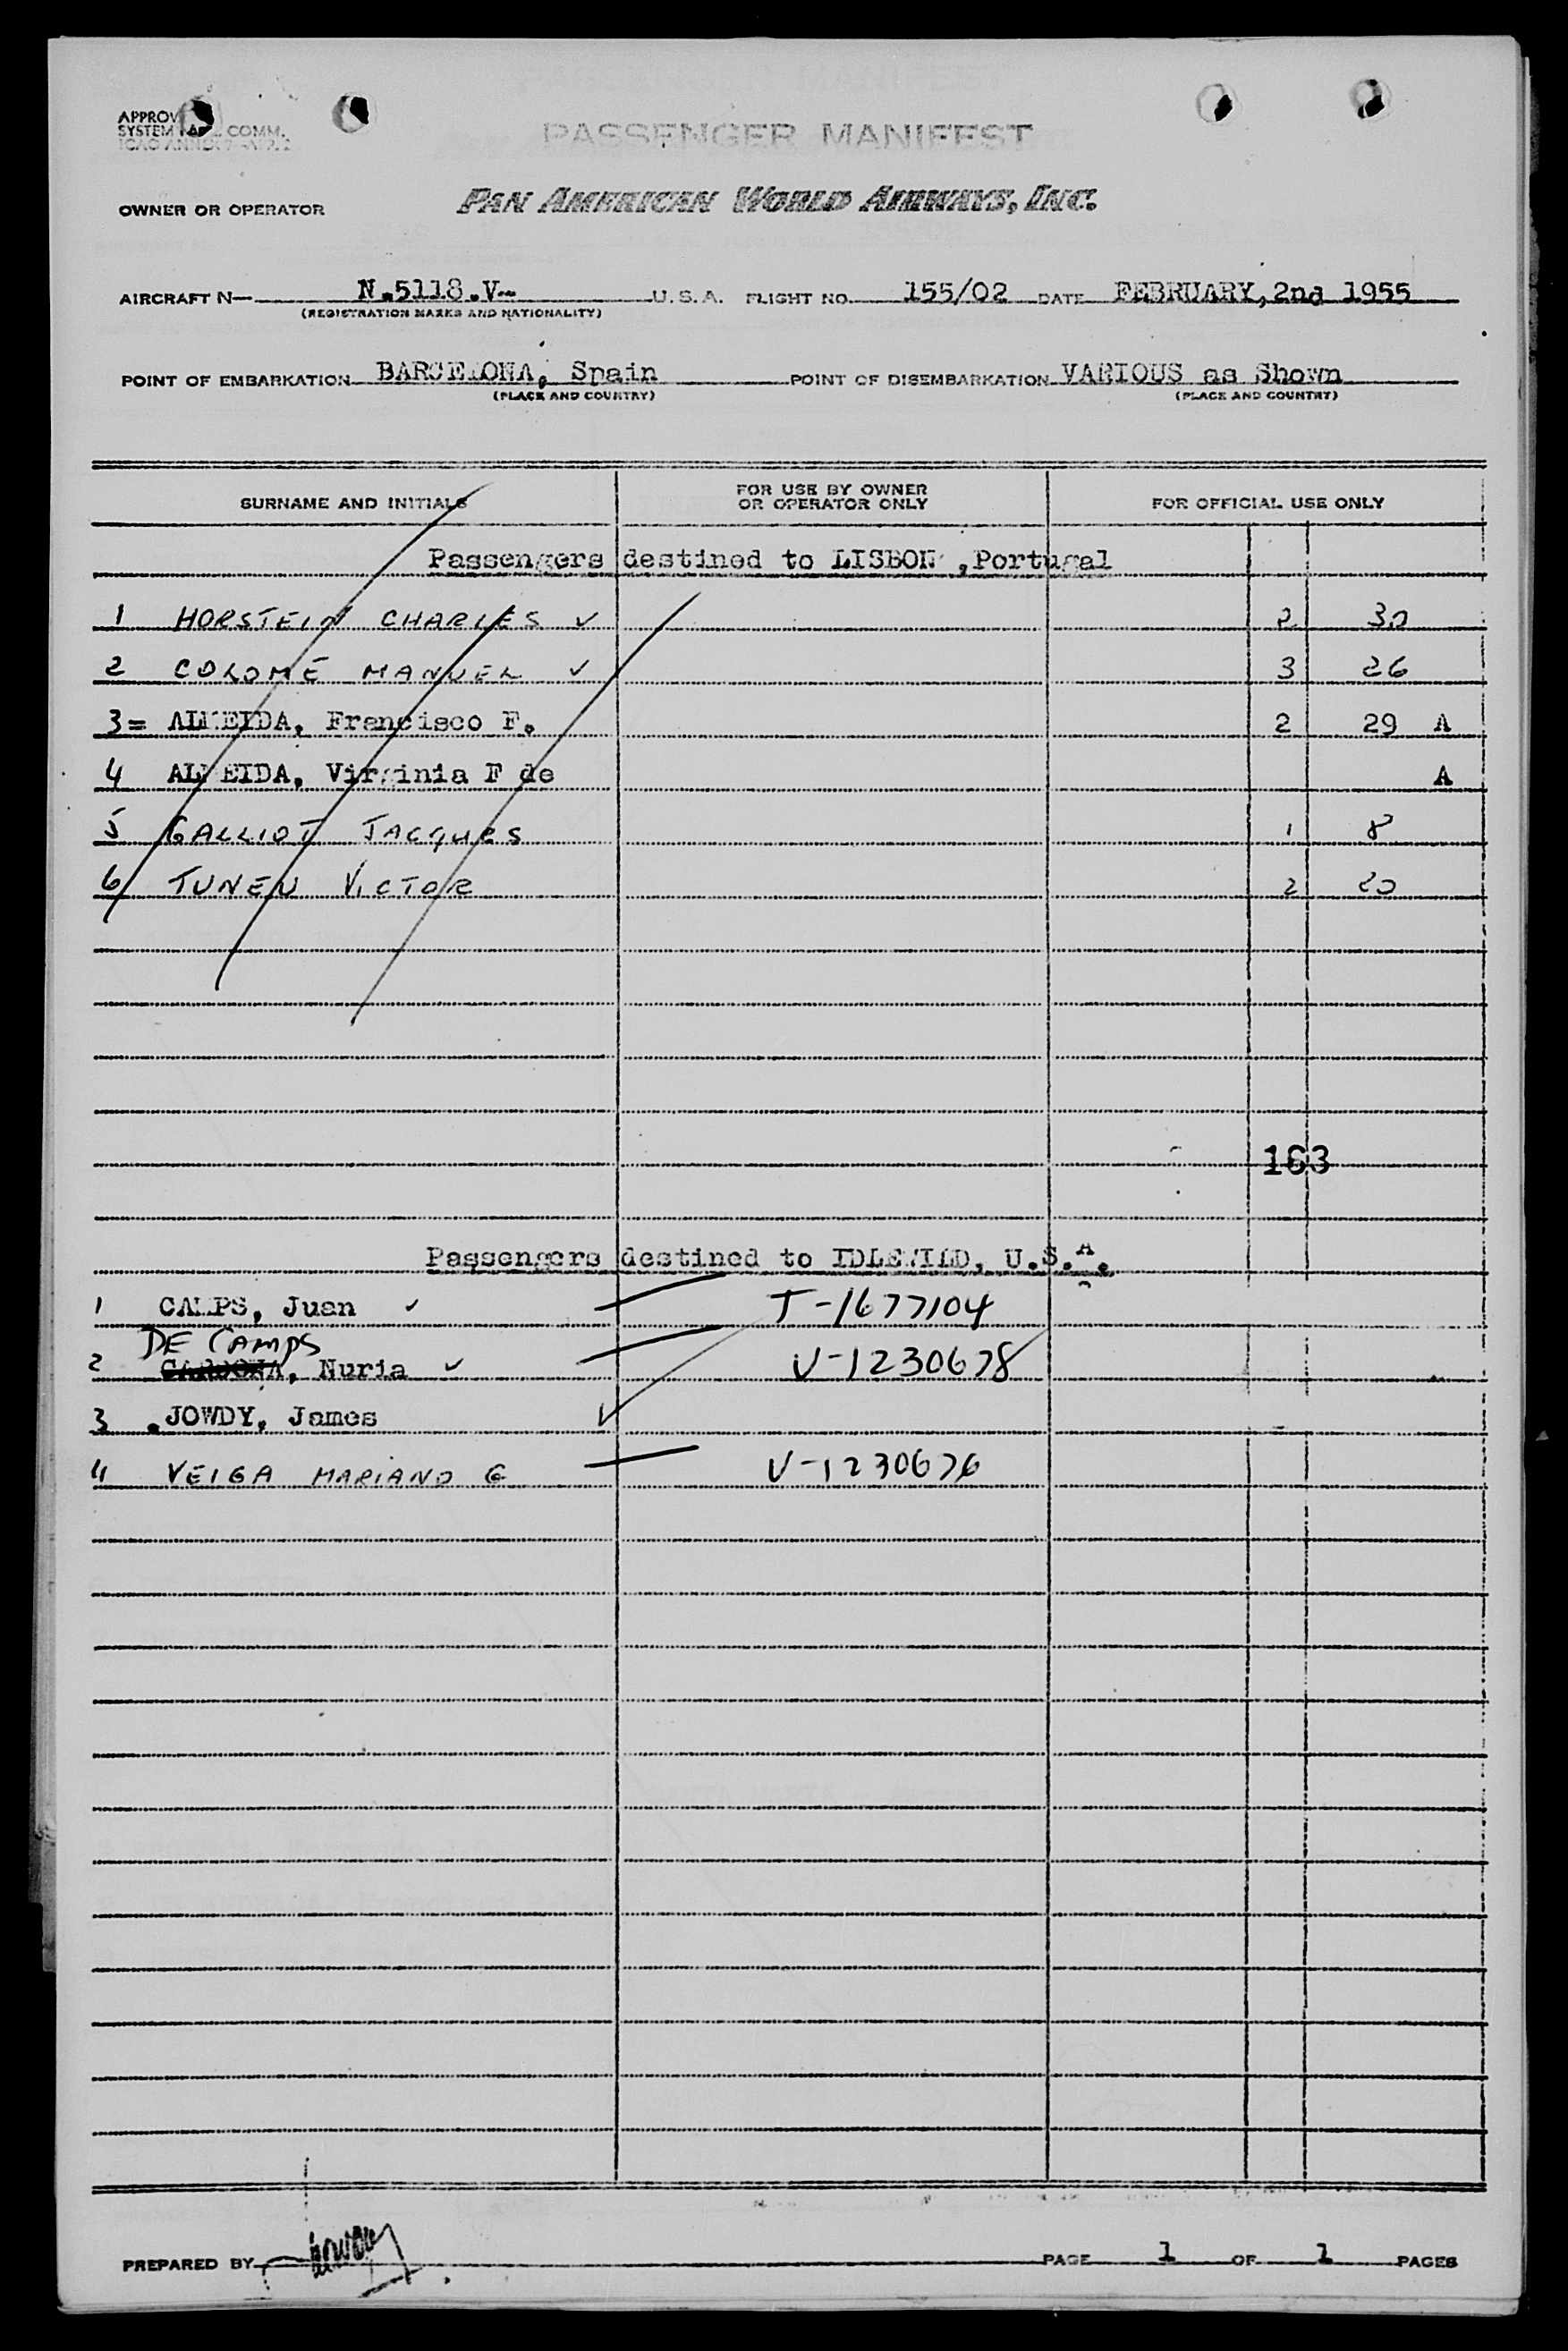 APPROV
SYSTEM COMM.
PASSENGER MANIFEST
OWNER OR OPERATOR PAN AMERICAN WORLD AIRWAYS, INC.
AIRCRAFT N— N.5118.V- U.S.A. FLIGHT NO. 155/02 DATE FEBRUARY, 2nd 1955
(REGISTRATION MARKS AND NATIONALITY)
POINT OF EMBARKATION BARCELONA, Spain POINT OF DISEMBARKATION VARIOUS as Shown
(PLACE AND COUNTRY) (PLACE AND COUNTRY)
SURNAME AND INITIALS FOR USE BY OWNER OR OPERATOR ONLY FOR OFFICIAL USE ONLY
Passengers destined to LISBON ,Portugal
1 HORSTEIN CHARLES ✓ 2 30
2 COLOMÉ MANUEL ✓ 3 26
3= ALMEIDA, Francisco F. 2 29 A
4 ALMEIDA, Virginia F de A
5 GALLIOT JACQUES 1 8
6 TUNEU VICTOR 2 20
163
Passengers destined to IDLEWILD, U.S.A.
1 CAMPS, Juan ✓ T-1677104
DE CAMPS
2 CARDONA, Nuria ✓ V-1230678
3 .JOWDY, James ✓
4 VEIGA MARIANO G V-1230676
PREPARED BY PAGE 1 OF 1 PAGES